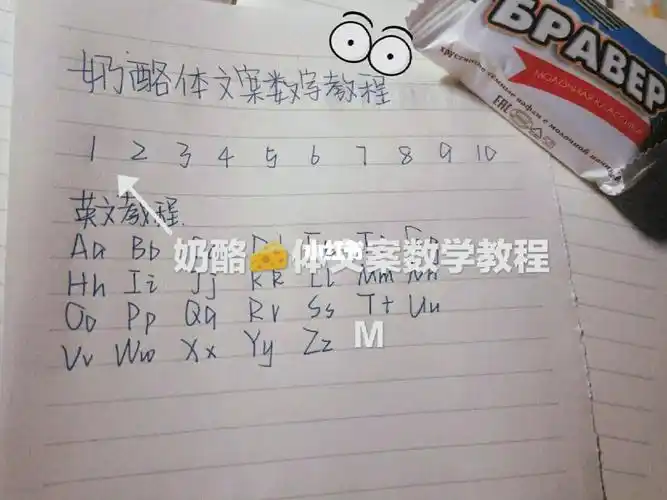 奶酪体文案数字教程
БРАВЕР
МОЛОЧНАЯ КЛАССИКА
хрустящие тёмные вафли с молочной
EAC
1 2 3 4 5 6 7 8 9 10
英文教程
奶酪🧀体文案数学教程
Aa Bb
Hh Ii Jj Kk Ll Mm Nn
Oo Pp Qq Rr Ss Tt Uu
M
Vv Ww Xx Yy Zz